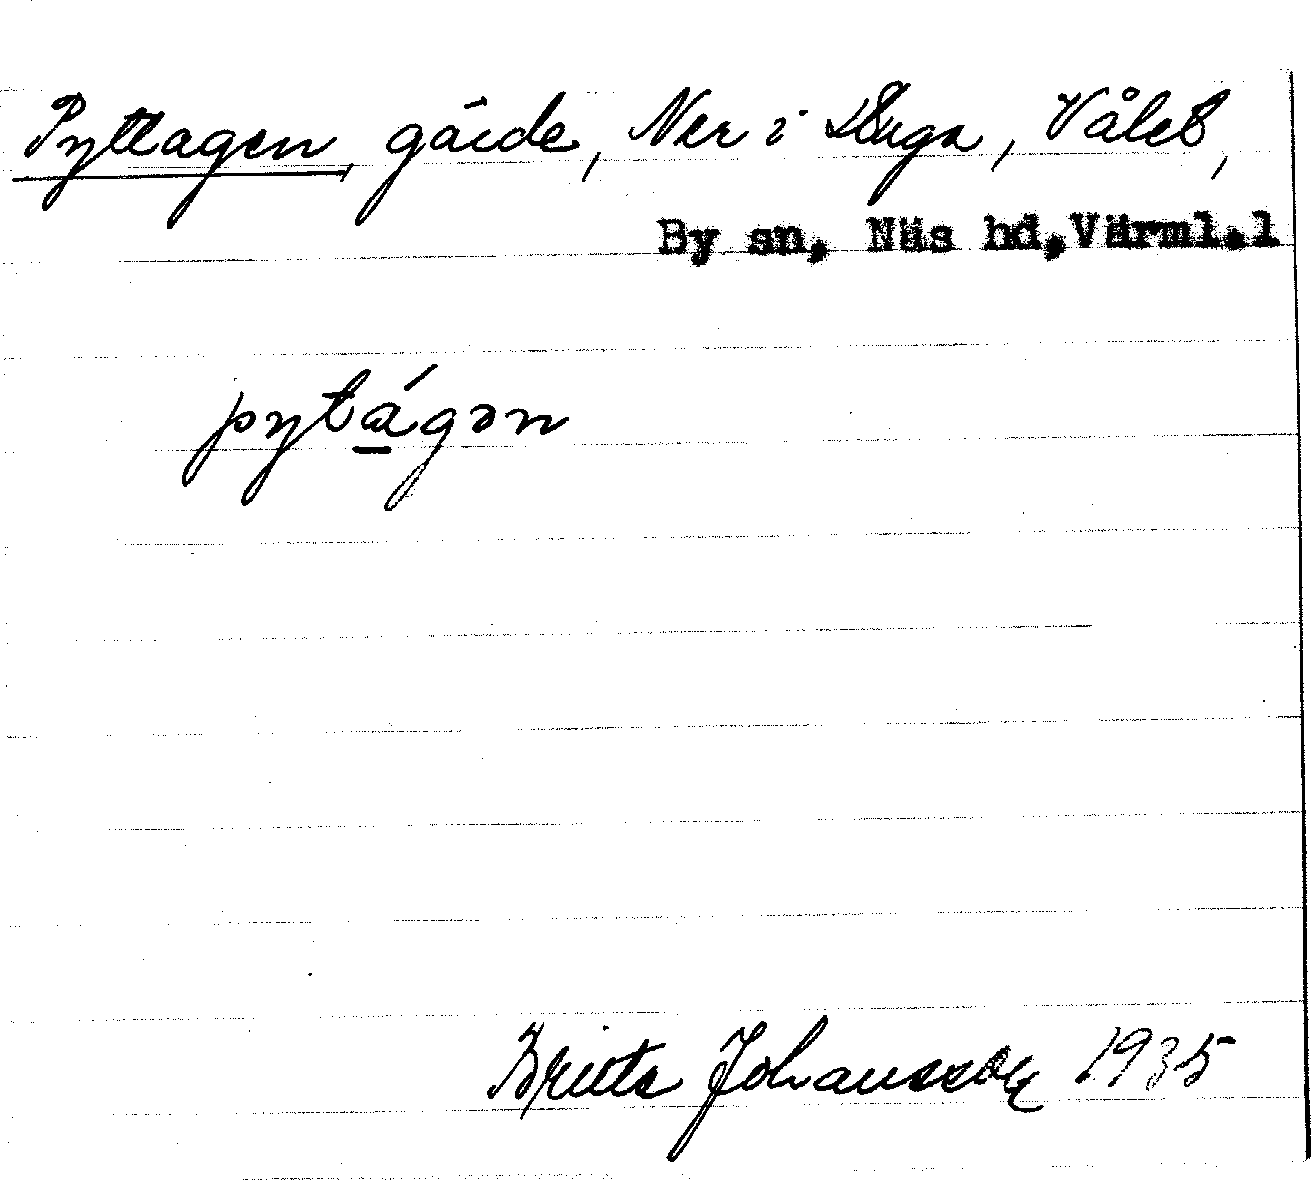 Pyttagen, gärde, Ner i Stuga, Vålet,
By sn, Näs hd, Värml.l
pytágən
Britta Johansson 1935